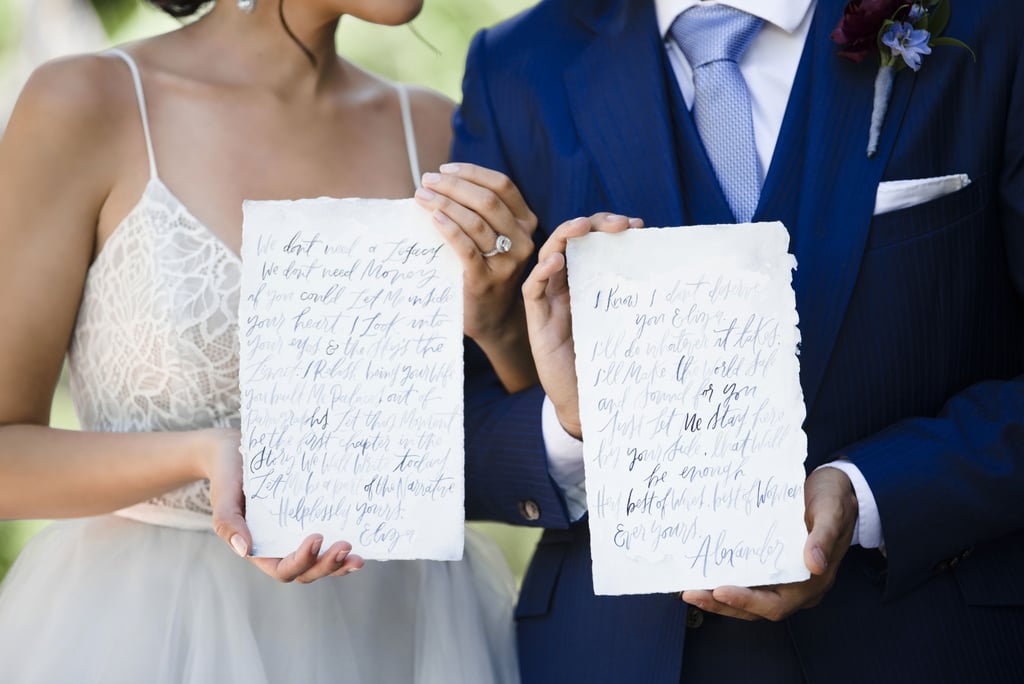 We dont need a Legacy
We dont need Money
if you could Let Me inside
your heart I Look into
your eyes & the sky's the
Limit. I Relish being your Wife
you built Me Palaces out of
Paragraphs Let this Moment
be the first chapter in the
Story We Will Write today
Let Me be a part of the Narrative
Helplessly yours.
Eliza
I Know I dont deserve
you Eliza
I'll do whatever it takes.
I'll Make the world Safe
and Sound for you
Just Let Me Stay here
by your Side. that Will
be enough
Hey best of Wives. best of Women
Ever yours.
Alexander